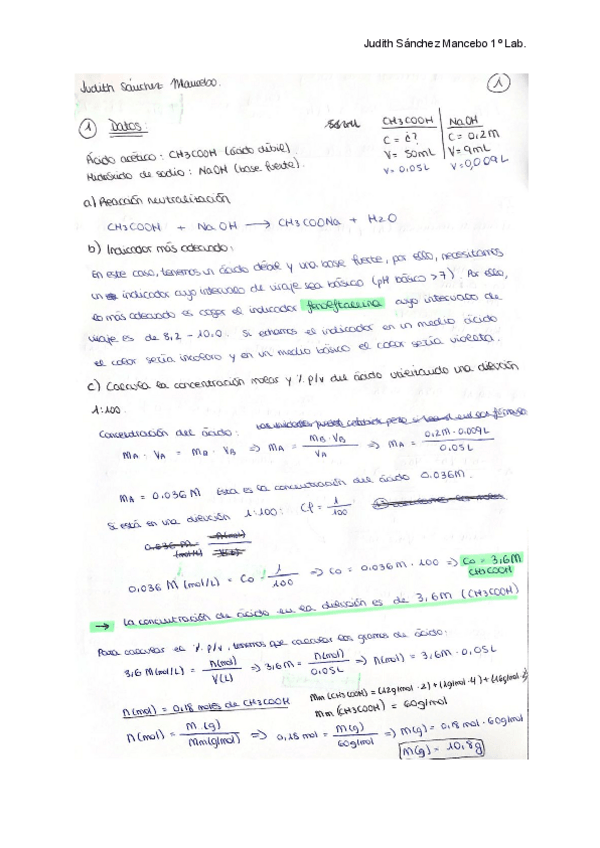 Judith Sánchez Mancebo 1º Lab.
Judith Sánchez Mancebo.
1
1 Datos:
CH3COOH | NaOH
C = ¿? | C = 0,2M
V = 50mL | V = 9mL
V = 0,05L | V = 0,009L
Ácido acético : CH3COOH (ácido débil).
Hidróxido de sodio : NaOH (base fuerte).
a) Reacción neutralización
CH3COOH + NaOH ⟶ CH3COONa + H2O
b) Indicador más adecuado:
En este caso, tenemos un ácido débil y una base fuerte, por ello, necesitamos
un indicador cuyo intervalo de viraje sea básico (pH básico > 7). Por ello,
lo más adecuado es coger el indicador fenolftaleina cuyo intervalo de
viaje es de 8,2 - 10,0. Si echamos el indicador en un medio ácido
el color sería incoloro y en un medio básico el color sería violeta.
c) Calcula la concentración molar y % p/v del ácido utilizando una dilución
1:100.
Concentración del ácido:
MA · VA = MB · VB ⇒ MA = MB · VB / VA ⇒ MA = 0,2M · 0.009L / 0.05L
MA = 0.036M Esta es la concentración del ácido 0.036M.
Si está en una dilución 1:100: Cf = 1/100
0.036 M (mol/L) = Co · 1/100 ⇒ Co = 0.036M · 100 ⇒ Co = 3,6M
CH3COOH
→ La concentración de ácido en la dilución es de 3,6M (CH3COOH)
Para calcular el % p/v, tenemos que calcular los gramos de ácido:
3,6 M(mol/L) = n(mol) / V(L) ⇒ 3,6M = n(mol) / 0.05L ⇒ n(mol) = 3,6M · 0,05L
n(mol) = 0,18 moles de CH3COOH
Mm (CH3COOH) = (12g/mol · 2) + (1g/mol · 4) + (16g/mol · 2)
Mm (CH3COOH) = 60g/mol
n(mol) = m (g) / Mm(g/mol) ⇒ 0,18 mol = m(g) / 60g/mol ⇒ m(g) = 0,18 mol · 60g/mol
m(g) = 10,8g